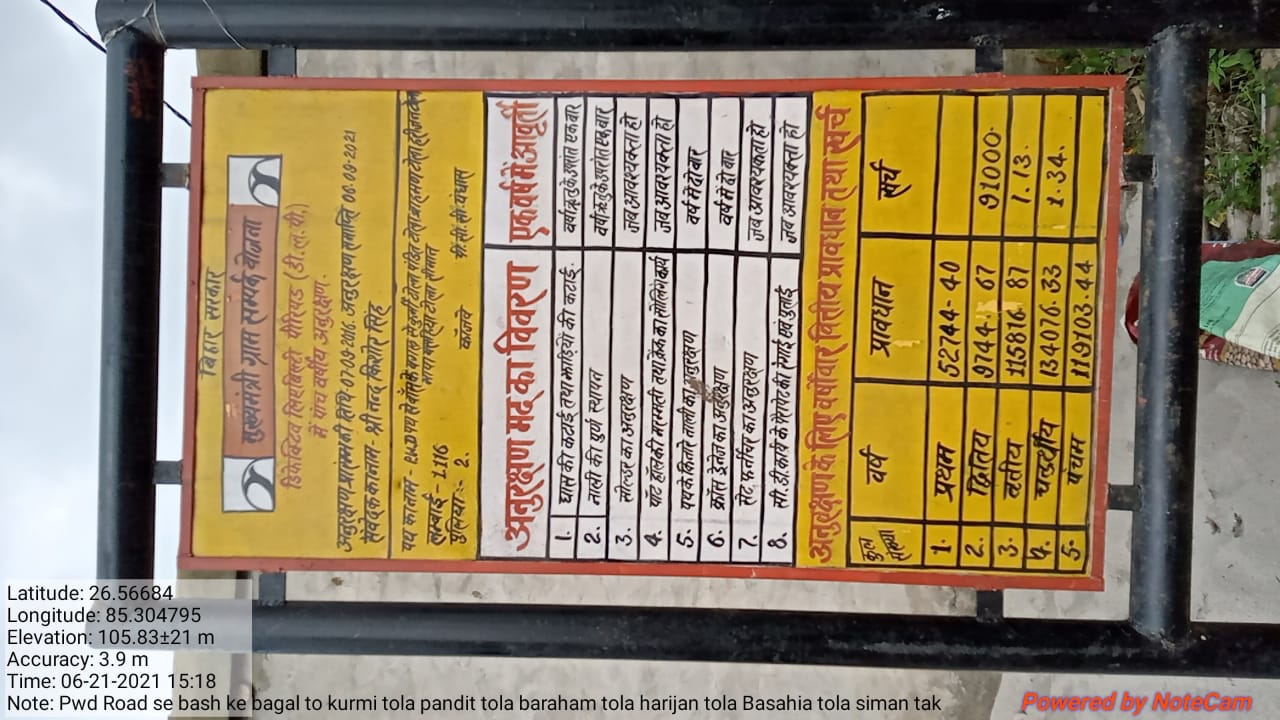 बिहार सरकार
मुख्यमंत्री ग्राम सम्पर्क योजना
डिफेक्टिव लिएबिलिटी पीरियड (डी.ल.पी.)
में पांच वर्षीय अनुरक्षण.
अनुरक्षण प्रारम्भ की तिथि 07-09-2016. अनुरक्षण समाप्ति 06-09-2021
संवेदक का नाम - श्री नन्द किशोर सिंह
पथ का नाम - P.W.D पथ से बाँस के बगल से कुर्मी टोला पंडित टोला बरहम टोला हरीजन टोला
बसहिया टोला सीमान
लम्बाई - 1.116
पुलिया:- 2.
अनुरक्षण मद का विवरण एक वर्ष में आवृर्ती
1. घास की कटाई तथा झाड़ियों की कटाई. वर्षा ऋतु के उपरांत एक बार
2. नाली की पुर्ण स्थापन वर्षा ऋतु के उपरांत एक बार
3. सोल्डर का अनुरक्षण जब आवश्यक्ता हो
4. पॉट हॉल की मरम्मती तथा क्रेक का सीलिंग कार्य जब आवश्यक्ता हो
5. पथ के किनारे नाली का अनुरक्षण वर्ष में दो बार
6. क्रॉस ड्रेनेज का अनुरक्षण वर्ष में दो बार
7. रोड फर्नीचर का अनुरक्षण जब आवश्यकता हो
8. सी.डी कार्य के पैरापेट की रंगाई एवं पुताई जब आवश्यक्ता हो
अनुरक्षण के लिए वर्षोवार वित्तीय प्रावधान तथा खर्च
कुल संख्या वर्ष प्रावधान खर्च
1. प्रथम 52744-40
2. द्वितिय 9744-67 91000.
3. तृतीय 115816-87 1.13.
4. चतुर्थीय 134076.33 1.34.
5. पंचम 119703.44
Latitude: 26.56684
Longitude: 85.304795
Elevation: 105.83±21 m
Accuracy: 3.9 m
Time: 06-21-2021 15:18
Note: Pwd Road se bash ke bagal to kurmi tola pandit tola baraham tola harijan tola Basahia tola siman tak
Powered by NoteCam